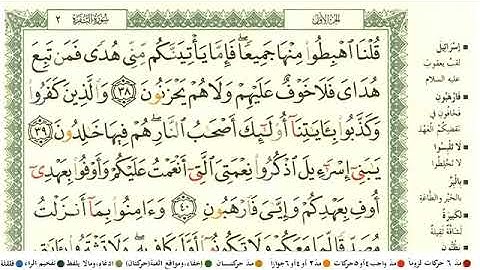 الجزء الأول
سورة البقرة ٢
قُلْنَا ٱهْبِطُوا۟ مِنْهَا جَمِيعًۭا ۖ فَإِمَّا يَأْتِيَنَّكُم مِّنِّى هُدًۭى فَمَن تَبِعَ
هُدَاىَ فَلَا خَوْفٌ عَلَيْهِمْ وَلَا هُمْ يَحْزَنُونَ ٣٨ وَٱلَّذِينَ كَفَرُوا۟
وَكَذَّبُوا۟ بِـَٔايَـٰتِنَآ أُو۟لَـٰٓئِكَ أَصْحَـٰبُ ٱلنَّارِ ۖ هُمْ فِيهَا خَـٰلِدُونَ ٣٩
يَـٰبَنِىٓ إِسْرَٰٓءِيلَ ٱذْكُرُوا۟ نِعْمَتِىَ ٱلَّتِىٓ أَنْعَمْتُ عَلَيْكُمْ وَأَوْفُوا۟ بِعَهْدِىٓ
أُوفِ بِعَهْدِكُمْ وَإِيَّـٰىَ فَٱرْهَبُونِ ٤٠ وَءَامِنُوا۟ بِمَآ أَنزَلْتُ
مُصَدِّقًۭا لِّمَا مَعَكُمْ وَلَا تَكُونُوٓا۟ أَوَّلَ كَافِرٍۭ بِهِۦ ۖ وَلَا تَشْتَرُوا۟ بِـَٔايَـٰتِى
إسرائيل
لقب يعقوب
عليه السلام
فارهبون
فخافون في
نقضكم العهد
لا تلبسوا
لا تخلطوا
بالبر
بالخير والطاعة
لكبيرة
لشاقة ثقيلة
مد ٦ حركات لزوما
مد واجب ٤ أو ٥ حركات
مد ٢ أو ٤ أو ٦ جوازا
مد حركتان
إخفاء، ومواقع الغنة (حركتان)
ادغام، وما لا يلفظ
تفخيم الراء
قلقلة